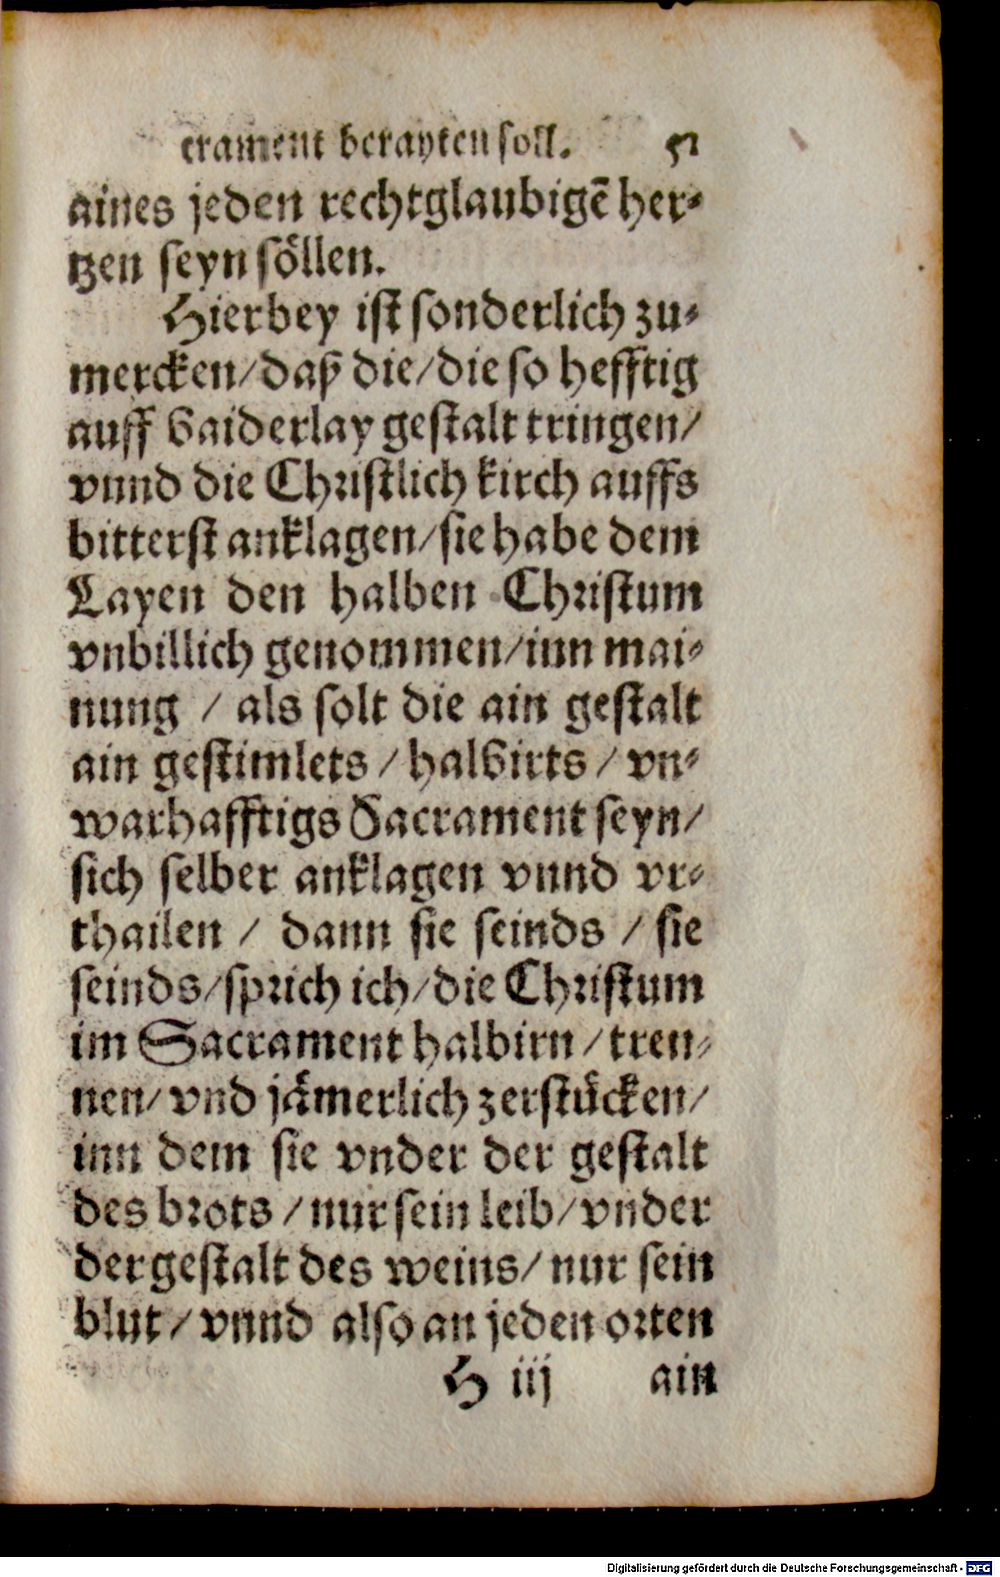 crament berayten soll. 51
aines jeden rechtglaubigē her⸗
tzen seyn soͤllen.
Hierbey ist sonderlich zu⸗
mercken/daß die/die so hefftig
auff baiderlay gestalt tringen/
vnnd die Christlich kirch auffs
bitterst anklagen/sie habe dem
Layen den halben Christum
vnbillich genommen/inn mai⸗
nung / als solt die ain gestalt
ain gestimlets / halbirts / vn⸗
warhafftigs Sacrament seyn/
sich selber anklagen vnnd vr⸗
thailen / dann sie seinds / sie
seinds/sprich ich/die Christum
im Sacrament halbirn / tren⸗
nen/ vnd jaͤmerlich zerstuͤcken/
inn dem sie vnder der gestalt
des brots / nur sein leib/ vnder
der gestalt des weins/ nur sein
blut / vnnd also an jeden orten
H iij ain
Digitalisierung gefördert durch die Deutsche Forschungsgemeinschaft - DFG